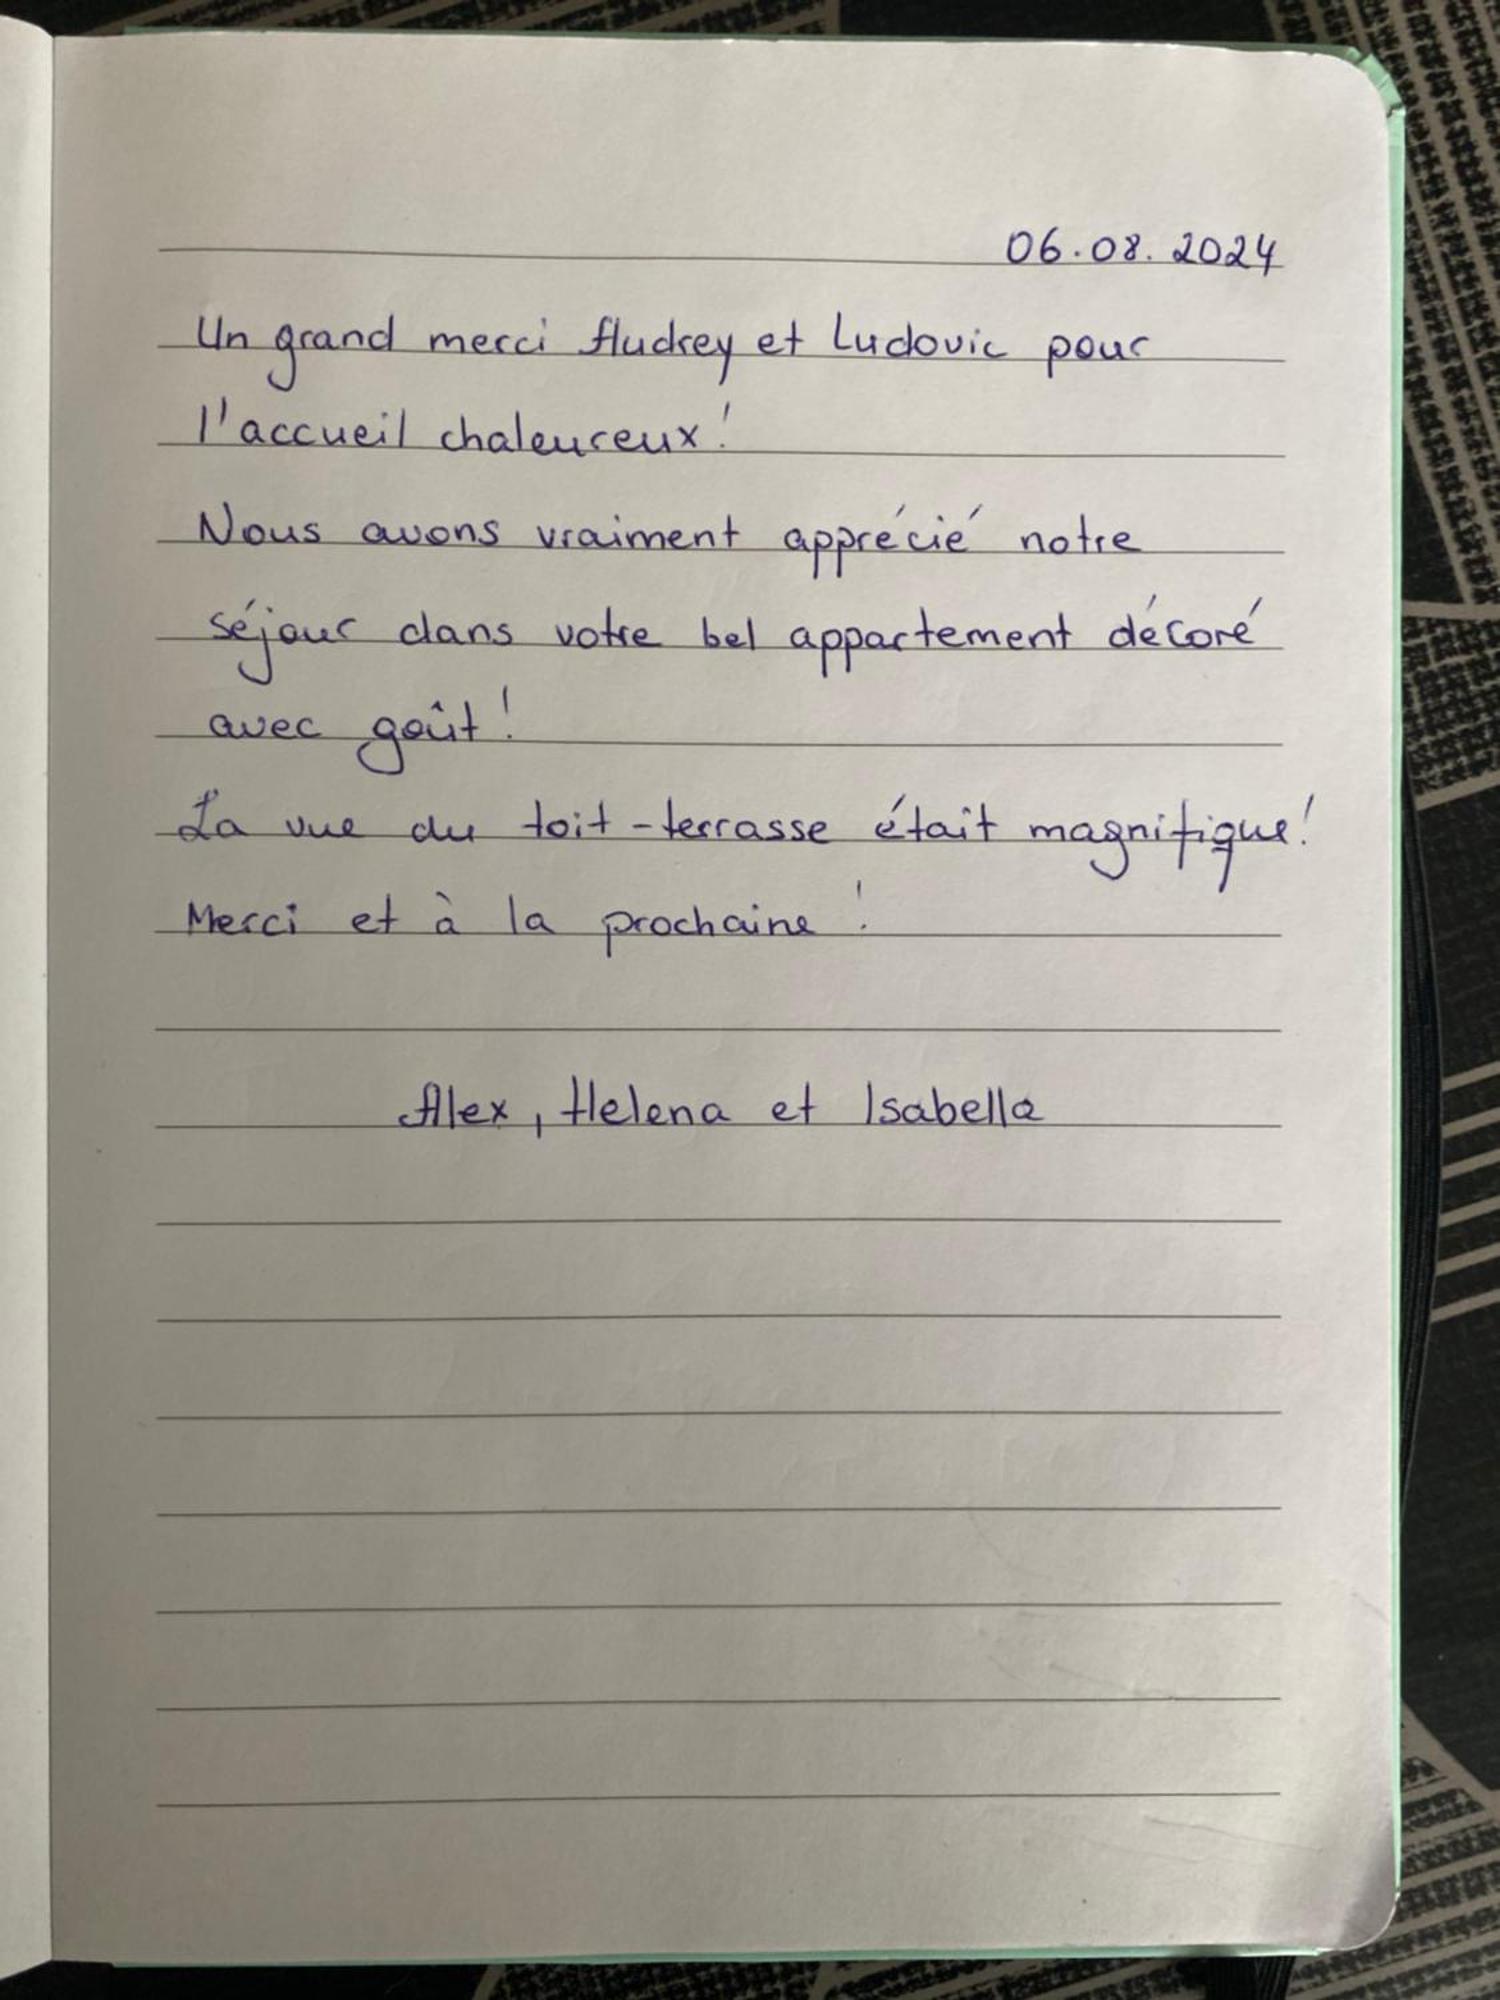 06.08.2024
Un grand merci Audrey et Ludovic pour
l'accueil chaleureux!
Nous avons vraiment apprécié notre
séjour dans votre bel appartement décoré
avec goût!
La vue du toit-terrasse était magnifique!
Merci et à la prochaine!
Alex, Helena et Isabella